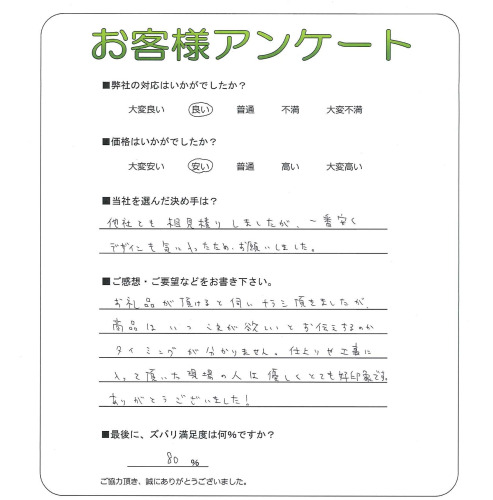 お客様アンケート
■弊社の対応はいかがでしたか？
大変良い 良い 普通 不満 大変不満
■価格はいかがでしたか？
大変安い 安い 普通 高い 大変高い
■当社を選んだ決め手は？
他社でも相見積りしましたが、一番安く
デザインも気に入ったため、お願いしました。
■ご感想・ご要望などをお書き下さい。
お礼品が頂けると伺い チラシ頂きましたが、
商品はいつ これが欲しいとお伝えするのか
タイミングが分かりません。仕上りや工事に
入って頂いた現場の人は優しくとても好印象です。
ありがとうございました！
■最後に、ズバリ満足度は何％ですか？
80 ％
ご協力頂き、誠にありがとうございました。